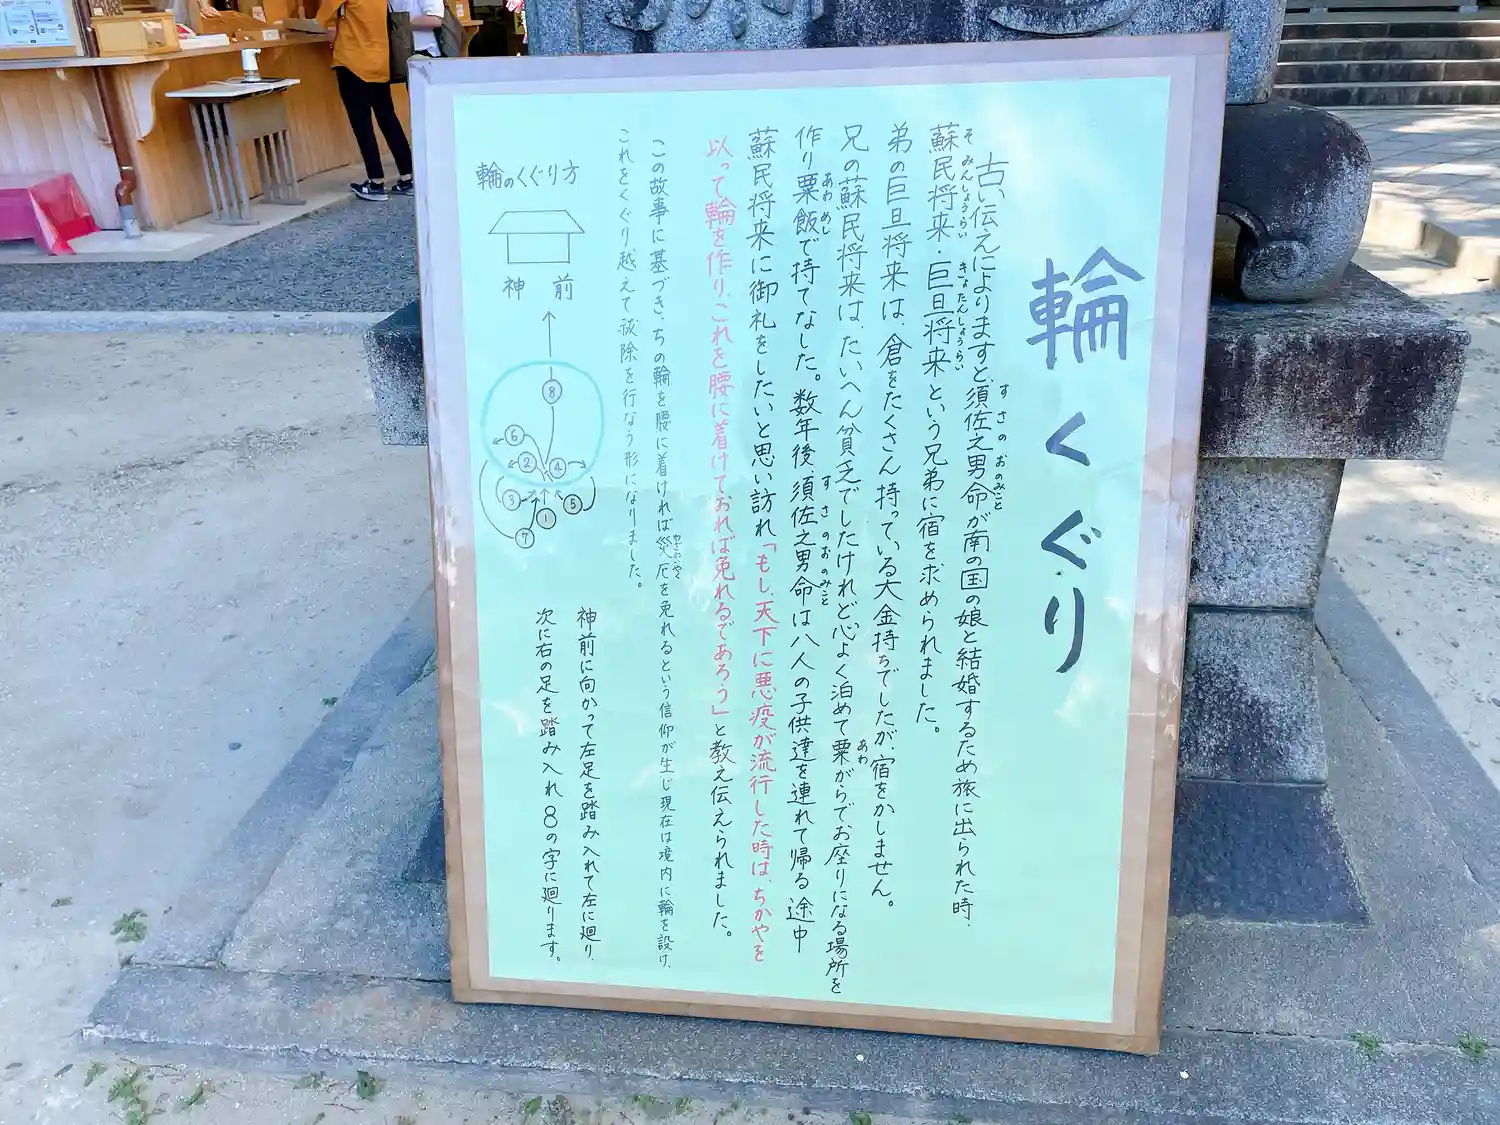 輪くぐり
古い伝えによりますと、須佐之男命が南の国の娘と結婚するため旅に出られた時、
すさのおのみこと
蘇民将来・巨旦将来という兄弟に宿を求められました。
そみんしょうらい
きょたんしょうらい
弟の巨旦将来は、倉をたくさん持っている大金持ちでしたが、宿をかしません。
兄の蘇民将来は、たいへん貧乏でしたけれど心よく泊めて粟がらでお座りになる場所を
あわ
作り粟飯で持てなした。数年後、須佐之男命は八人の子供達を連れて帰る途中
あわめし
すさのおのみこと
蘇民将来に御礼をしたいと思い訪れ「もし、天下に悪疫が流行した時は、ちかやを
以って輪を作り、これを腰に着けておれば免れるであろう」と教え伝えられました。
この故事に基づき、ちの輪を腰に着ければ災厄を免れるという信仰が生じ現在は境内に輪を設け、
わざわいやく
これをくぐり越えて祓除を行なう形になりました。
輪のくぐり方
神前
8
6
2
4
3
5
1
7
神前に向かって左足を踏み入れて左に廻り、
次に右の足を踏み入れ8の字に廻ります。